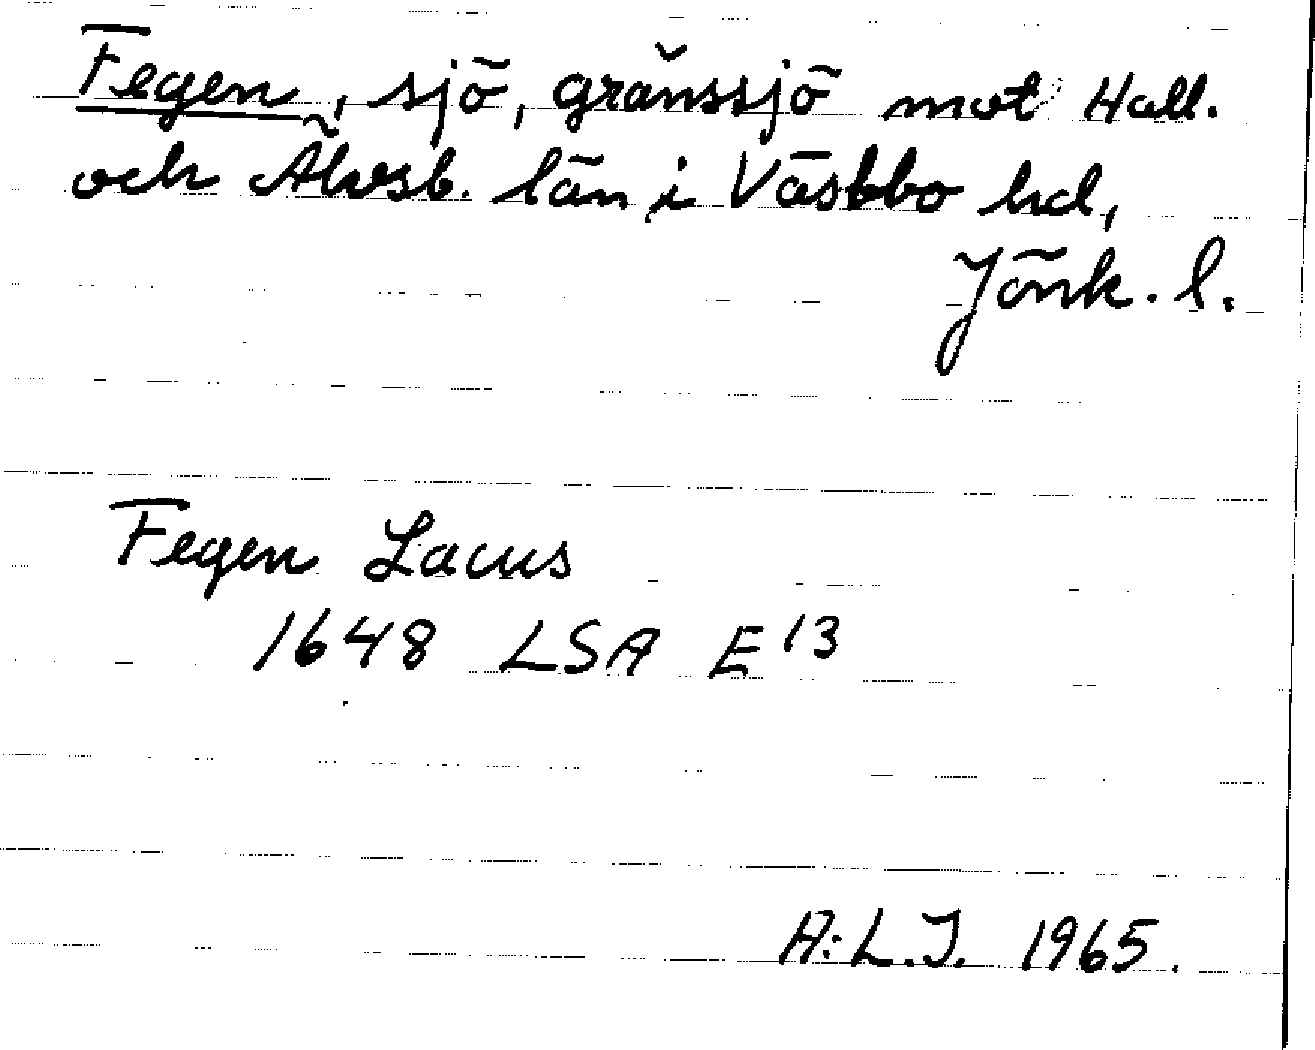 Fegen, sjö, gränssjö mot Hall.
och Älvsb. län i Västbo hd,
Jönk. l.
Fegen Lacus
1648 LSA E 13
A:L.J. 1965.